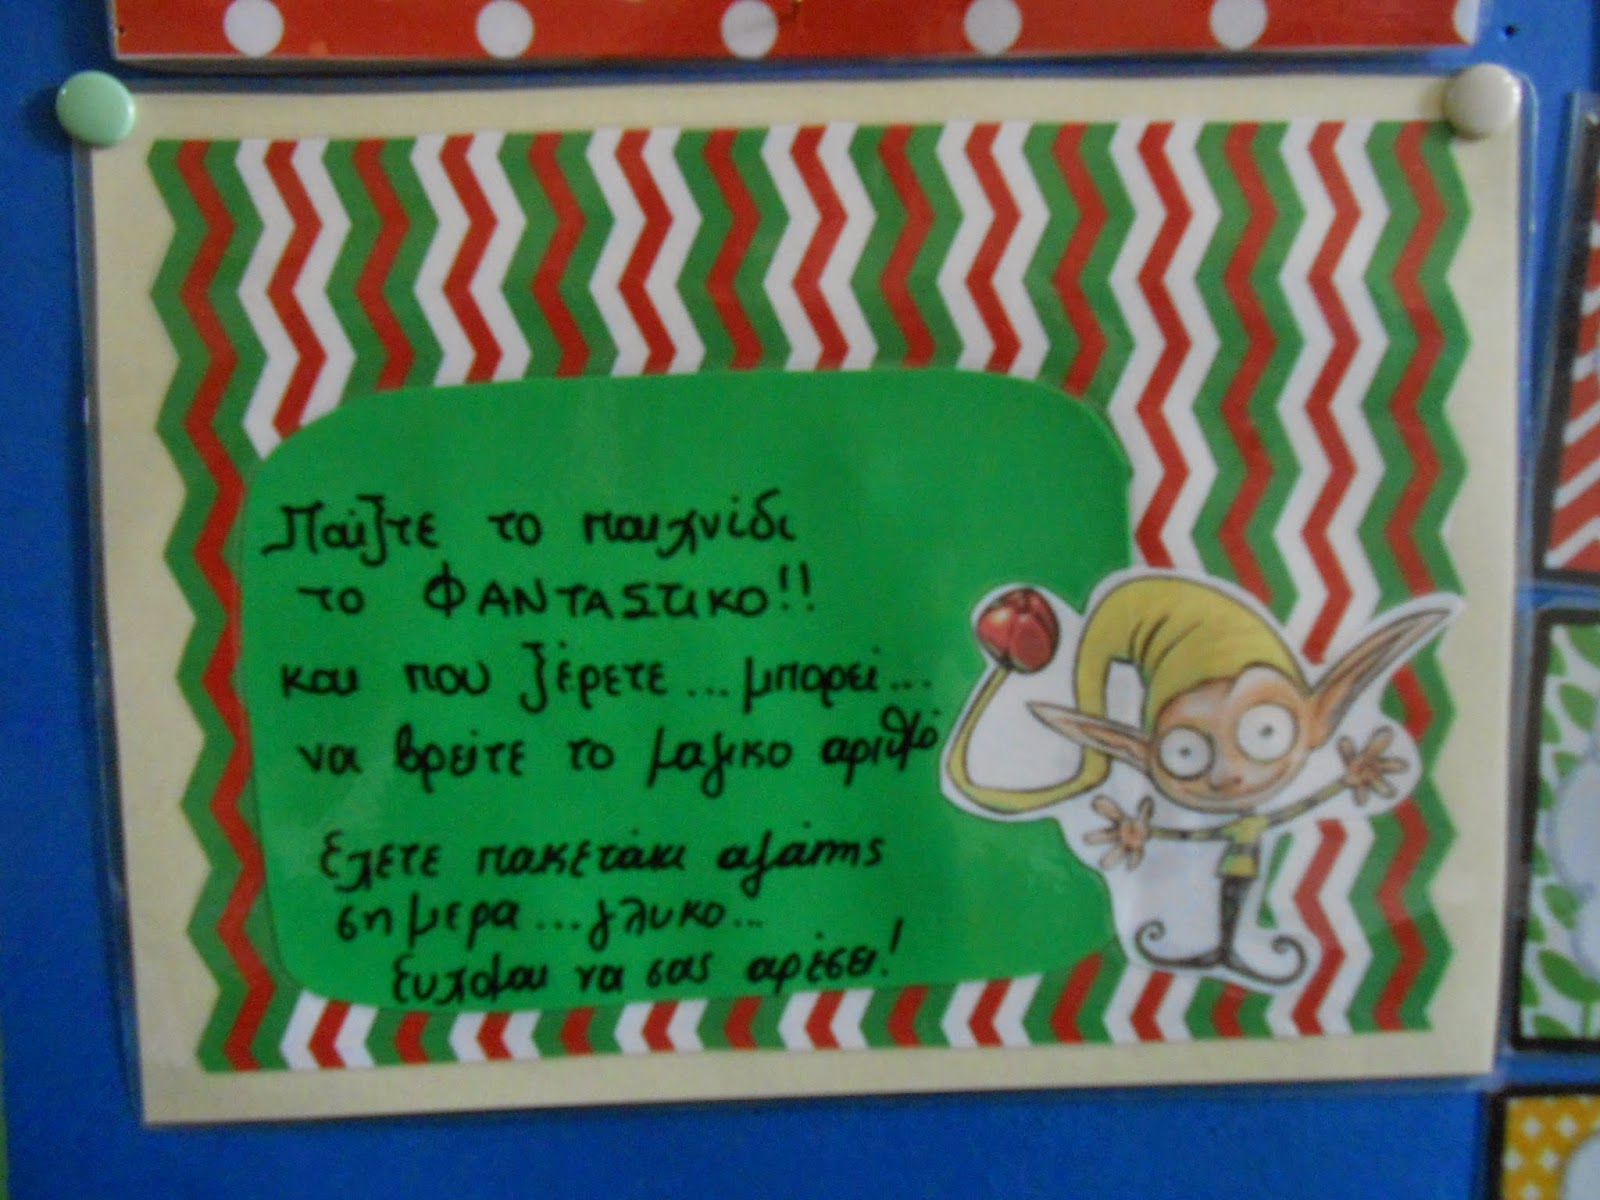 Παίξτε το παιχνίδι
το ΦΑΝΤΑΣΤΙΚΟ!!
και που ξέρετε... μπορεί...
να βρείτε το μαγικο αριθμό
έχετε πακετάκι αγάπης
σημερα... γλυκο...
εύχομαι να σας αρέσει!